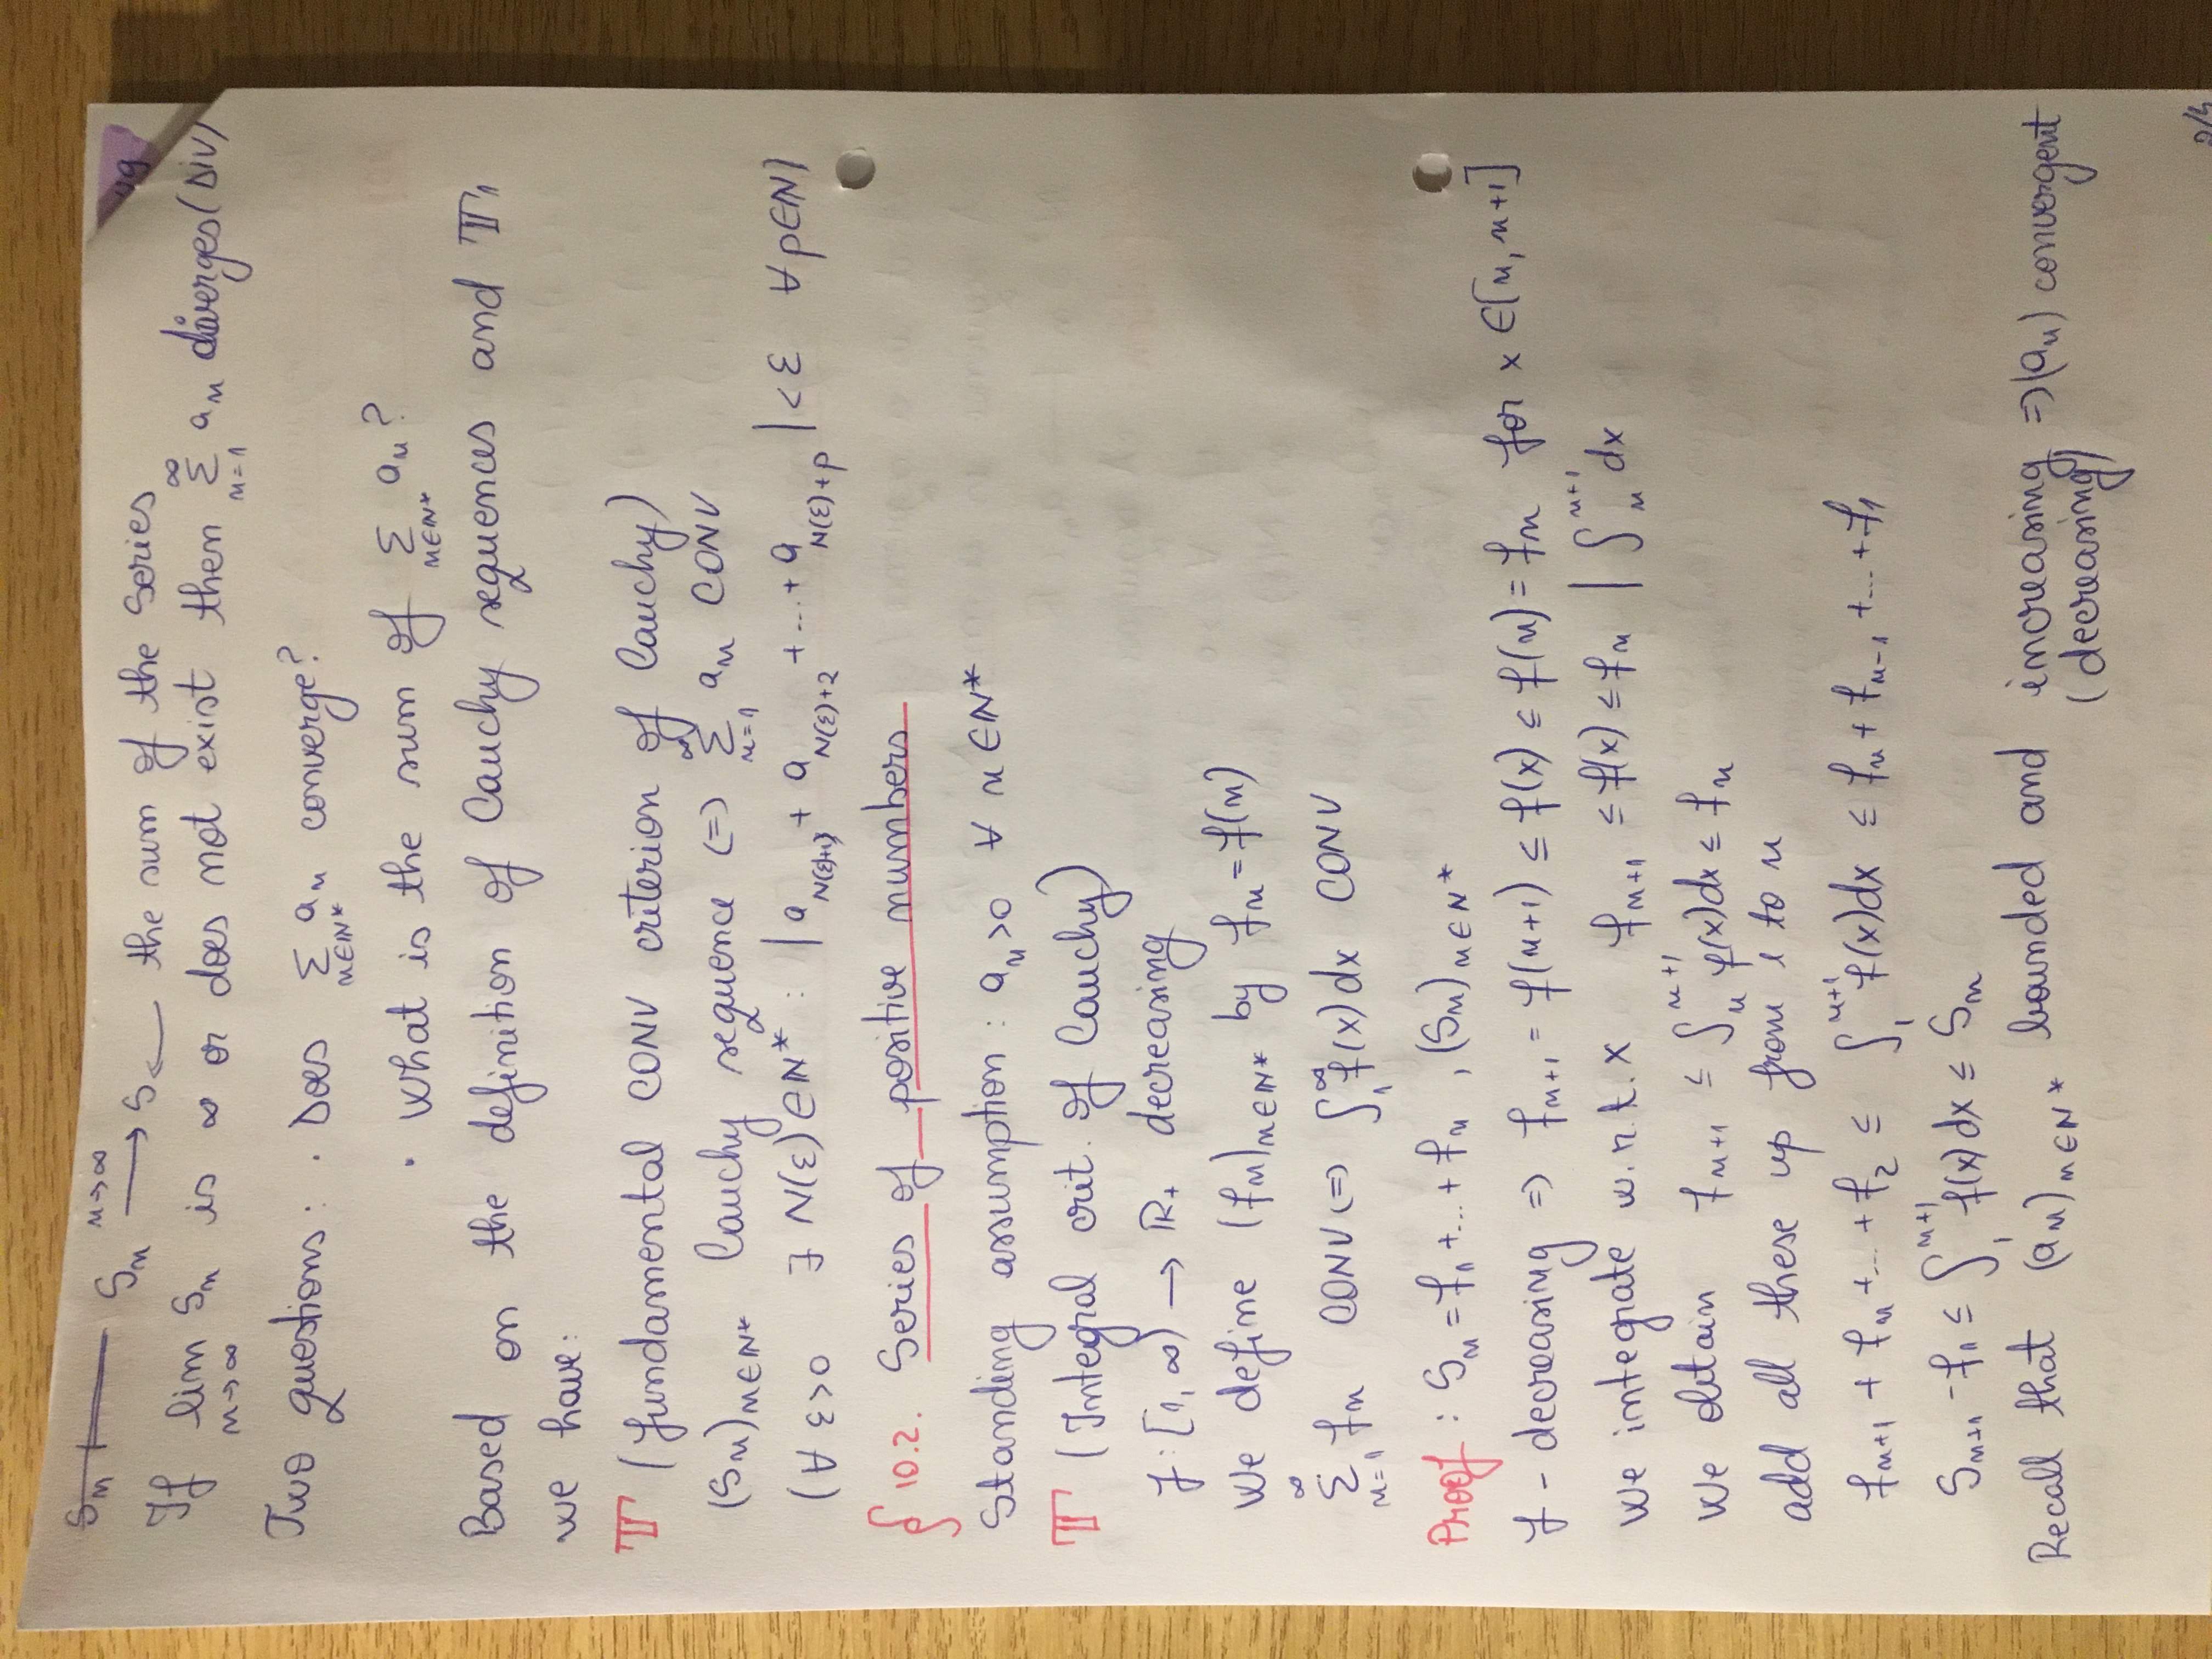 S_n +
S_n →(n→∞) S ← the sum of the series
If lim_{n→∞} S_n is ∞ or does not exist then ∑_{n=1}^{∞} a_n diverges (DIV)
Two questions: · Does ∑_{n∈ℕ*} a_n converge?
· What is the sum of ∑_{n∈ℕ*} a_n?
Based on the definition of Cauchy sequences and 𝕋_1
we have:
𝕋 (fundamental CONV criterion of Cauchy)
(S_n)_{n∈ℕ*} Cauchy sequence <=> ∑_{n=1}^{∞} a_n CONV
(∀ ε>0 ∃ N(ε)∈ℕ* : |a_{N(ε)+1} + a_{N(ε)+2} + ... + a_{N(ε)+p}| < ε ∀ p∈ℕ)
§ 10.2. Series of positive numbers
Standing assumption: a_n>0 ∀ n∈ℕ*
𝕋 (Integral crit. of Cauchy)
f:[1,∞) → ℝ+ decreasing
We define (f_n)_{n∈ℕ*} by f_n = f(n)
∑_{n=1}^{∞} f_n CONV <=> ∫_1^∞ f(x)dx CONV
Proof: S_n = f_1 + ... + f_n , (S_n)_{n∈ℕ*}
f - decreasing => f_{n+1} = f(n+1) ≤ f(x) ≤ f(n) = f_n for x ∈[n, n+1]
We integrate w.r.t. x f_{n+1} ≤ f(x) ≤ f_n | ∫_n^{n+1} dx
We obtain f_{n+1} ≤ ∫_n^{n+1} f(x)dx ≤ f_n
add all these up from 1 to n
f_{n+1} + f_n + ... + f_2 ≤ ∫_1^{n+1} f(x)dx ≤ f_n + f_{n-1} + ... + f_1
S_{n+1} - f_1 ≤ ∫_1^{n+1} f(x)dx ≤ S_n
Recall that (a_n)_{n∈ℕ*} bounded and increasing => (a_n) convergent
(decreasing)